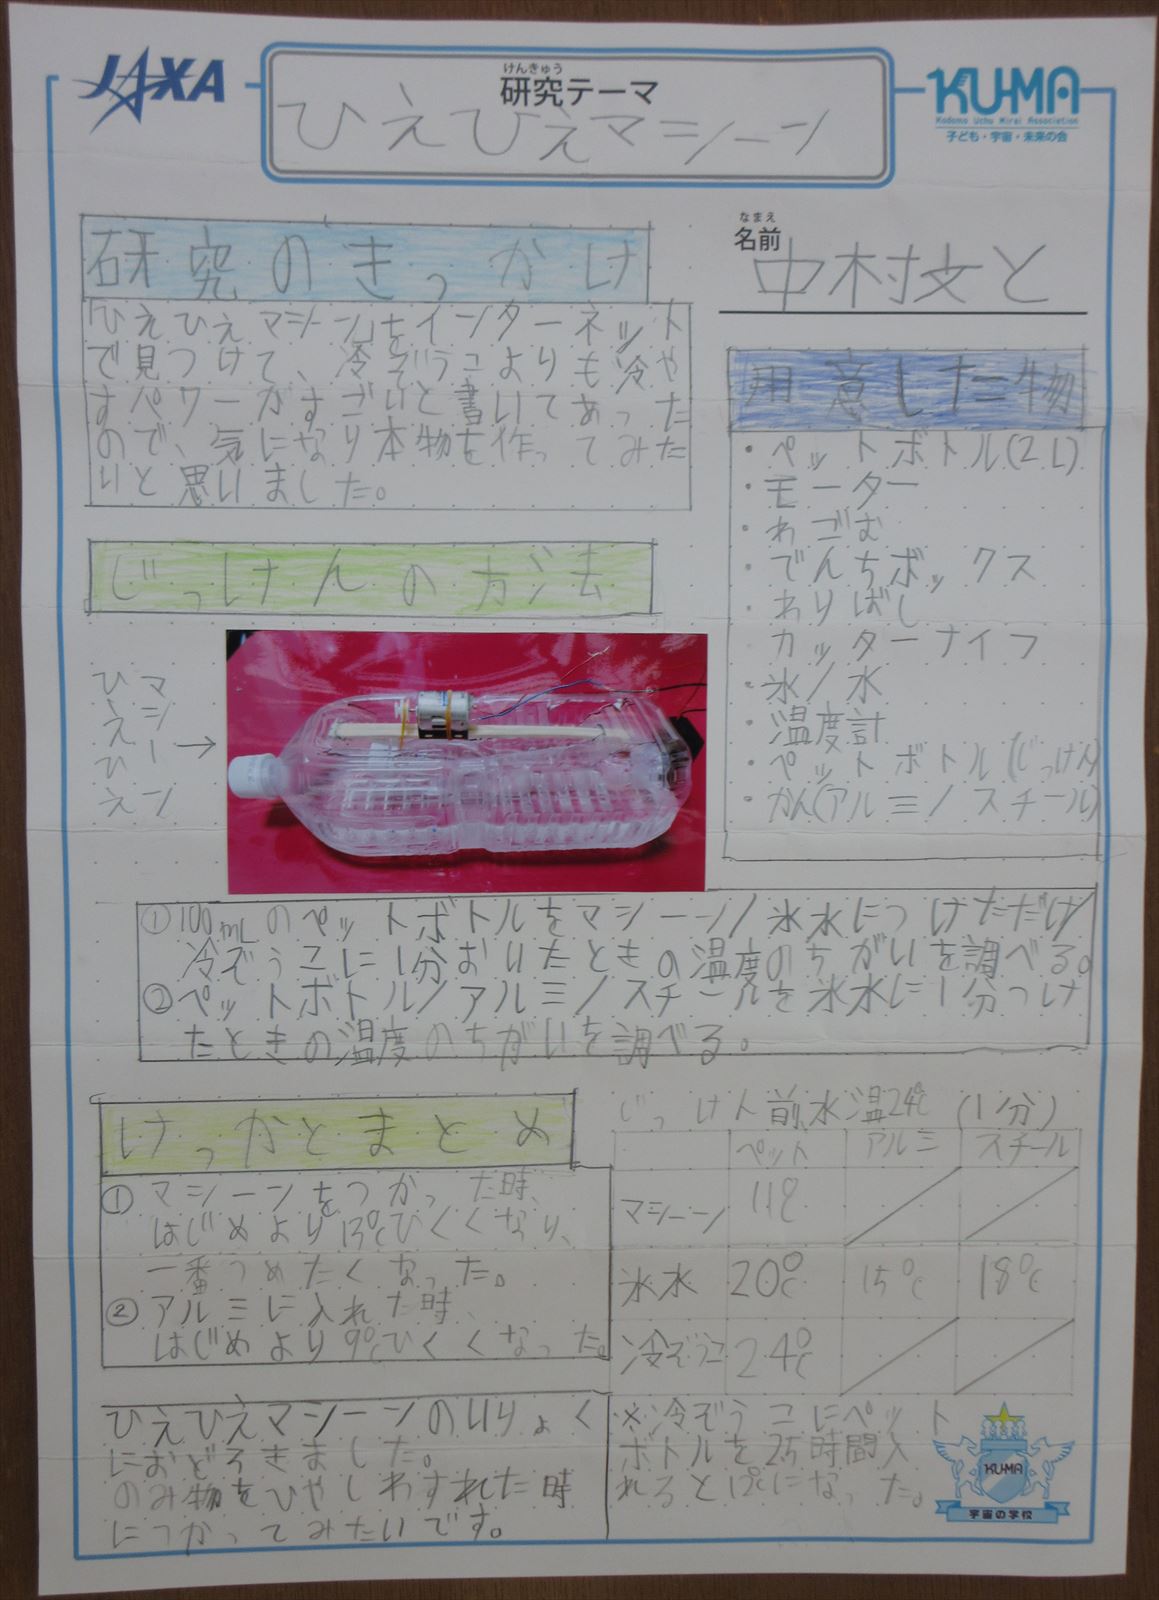 JAXA
けんきゅう
研究テーマ
ひえひえマシーン
KU-MA
Kodomo Uchu Mirai Association
子ども・宇宙・未来の会
なまえ
名前
中村文と
研究のきっかけ
「ひえひえマシーン」をインターネット
で見つけて、冷ぞうこよりも冷や
すパワーがすごいと書いてあった
ので、気になり本物を作ってみた
いと思いました。
用意した物
・ペットボトル(2L)
・モーター
・わごむ
・でんちボックス
・わりばし
カッターナイフ
・氷/水
・温度計
・ペットボトル(じっけん)
・かん(アルミ/スチール)
じっけんの方法
ひえひえ
マシーン
→
① 100mLのペットボトルをマシーン/氷水につけただけ/
冷ぞうこに1分おいたときの温度のちがいを調べる。
② ペットボトル/アルミ/スチールを氷水に1分つけ
たときの温度のちがいを調べる。
けっかとまとめ
① マシーンをつかった時、
はじめより13℃ひくくなり、
一番つめたくなった。
② アルミに入れた時、
はじめより9℃ひくくなった。
じっけん前水温24℃ (1分)
ペット アルミ スチール
マシーン 11℃
氷水 20℃ 15℃ 18℃
冷ぞうこ 24℃
ひえひえマシーンのいりょく
におどろきました。
のみ物をひやしわすれた時
につかってみたいです。
※冷ぞうこにペット
ボトルを2.5時間入
れると12℃になった。
KU-MA
宇宙の学校